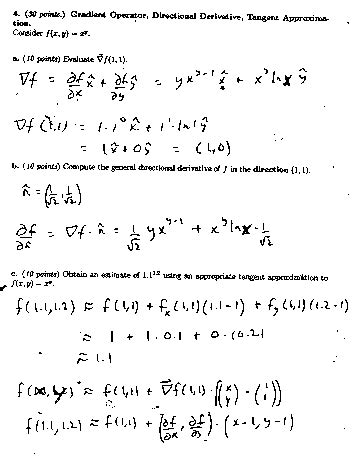 4. (30 points.) Gradient Operator, Directional Derivative, Tangent Approxima-
tion.
Consider f(x, y) = x^y.
a. (10 points) Evaluate ∇f(1,1).
∇f = ∂f/∂x x̂ + ∂f/∂y ŷ = yx^(y-1) x̂ + x^y ln x ŷ
∇f(1,1) = 1·1^0 x̂ + 1^1·ln 1 ŷ
= 1x̂ + 0ŷ = (1,0)
b. (10 points) Compute the general directional derivative of f in the direction (1,1).
n̂ = (1/√2, 1/√2)
∂f/∂n̂ = ∇f·n̂ = 1/√2 yx^(y-1) + x^y ln x · 1/√2
c. (10 points) Obtain an estimate of 1.1^1.2 using an appropriate tangent approximation to
f(x, y) = x^y.
f(1.1,1.2) ≈ f(1,1) + f_x(1,1)(1.1-1) + f_y(1,1)(1.2-1)
≈ 1 + 1·0.1 + 0·(0.2)
≈ 1.1
≈ f(1,1) + ∇f(1,1)·((x y) - (1 1))
f(1.1,1.2) ≈ f(1,1) + (∂f/∂x, ∂f/∂y)·(x-1, y-1)